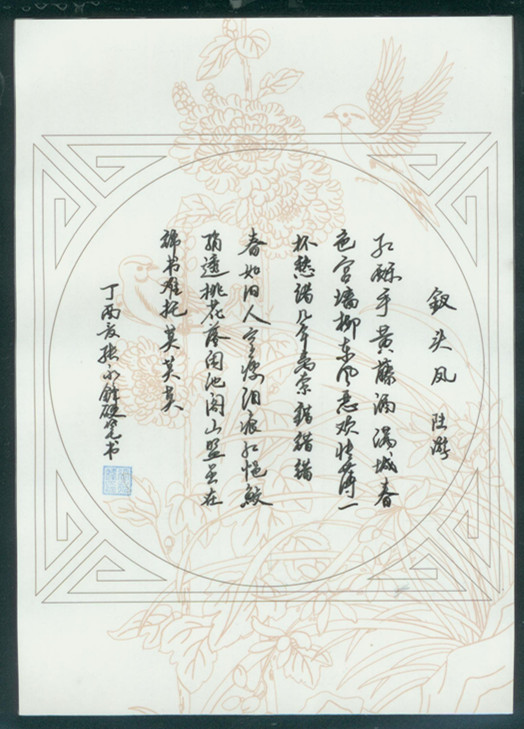 钗头凤 陆游
红酥手黄藤酒满城春
色宫墙柳东风恶欢情薄一
杯愁绪几年离索错错错
春如旧人空瘦泪痕红悒鲛
绡透桃花落闲池阁山盟虽在
锦书难托莫莫莫
丁酉 张 硬笔书